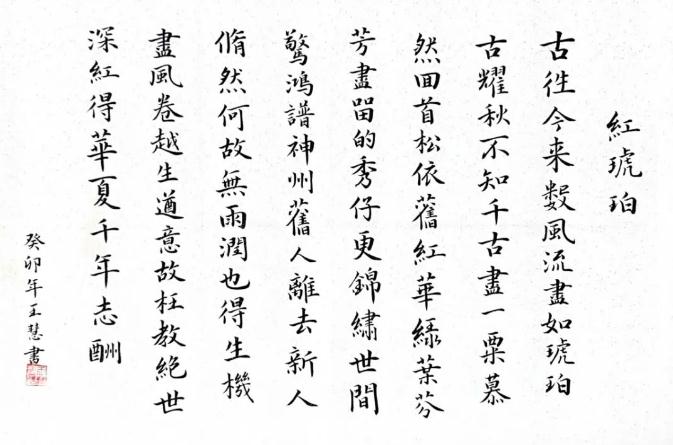 紅琥珀
古徃今来数風流盡如琥珀
古耀秋不知千古盡一粟慕
然回首松依舊紅華綠葉芬
芳盡留的秀仔更錦繡世間
驚鴻譜神州舊人離去新人
脩然何故無雨潤也得生機
盡風卷越生遒意故枉教絕世
深紅得華夏千年志酬
癸卯年王慧書